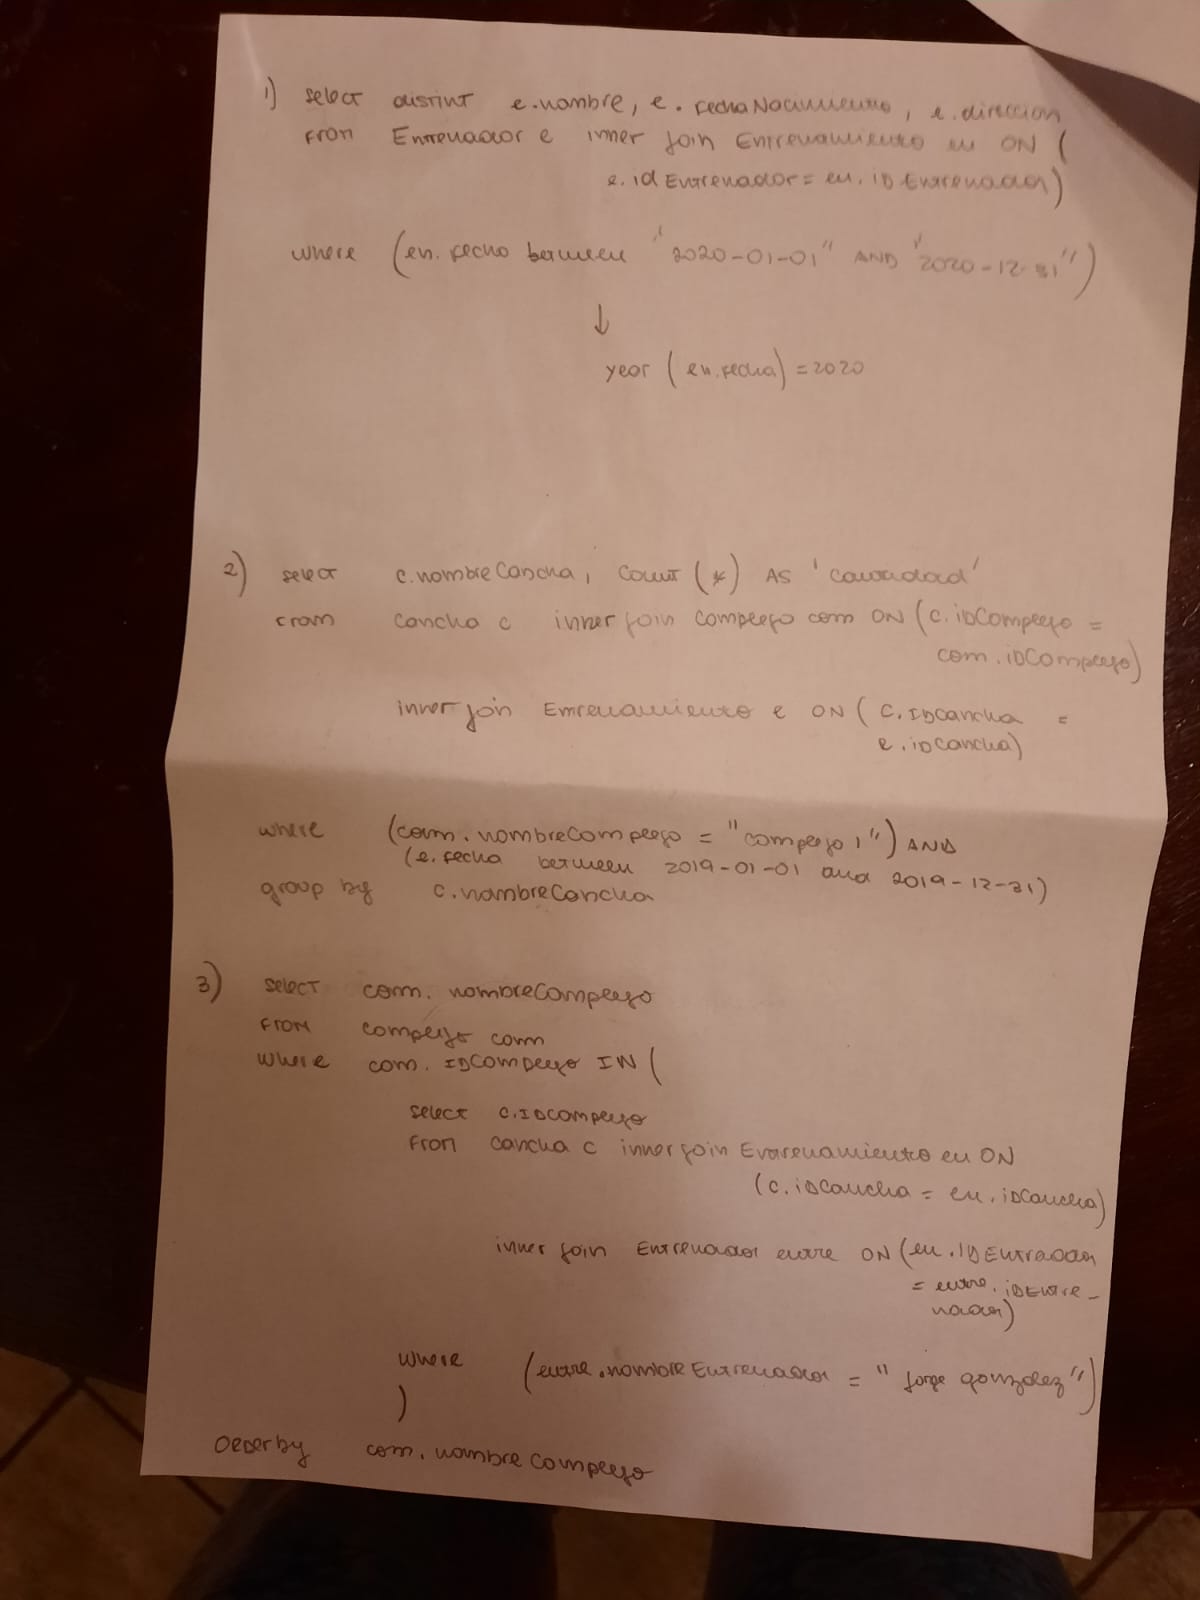 1) select distint e.nombre, e.fechaNacimiento, e.direccion
from Entrenador e inner join Entrenamiento en ON (
e.idEntrenador = en.iDEntrenador)
where (en.fecha between "2020-01-01" AND "2020-12-31")
↓
year (en.fecha) = 2020
2) select c.nombreCancha, count (*) AS 'cantidad'
from cancha c inner join complejo com ON (c.iDComplejo =
com.iDComplejo)
inner join Entrenamiento e ON (c.IDcancha =
e.iDcancha)
where (com.nombreComplejo = "complejo 1") AND
(e.fecha between 2019-01-01 and 2019-12-31)
group by c.nombreCancha
3) select com.nombreComplejo
from complejo com
where com.IDComplejo IN (
select c.IDcomplejo
from cancha c inner join Entrenamiento en ON
(c.iDcancha = en.iDcancha)
inner join Entrenador entre ON (en.IDEntrador
= entre.iDEntre-
nador)
where (entre.nombreEntrenador = "Jorge gonzalez")
)
Orderby com.nombreComplejo